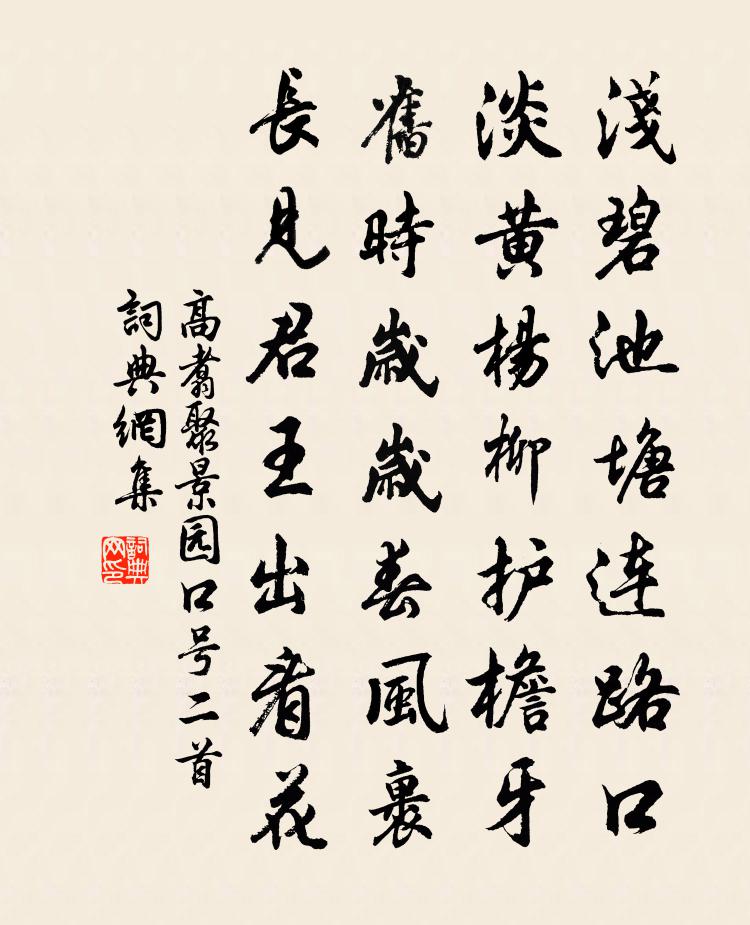 淺碧池塘连路口
淡黄楊柳护檐牙
舊時歲歲春風裏
長見君王出看花
高翥聚景园口号二首
詞典網集
詞典网印